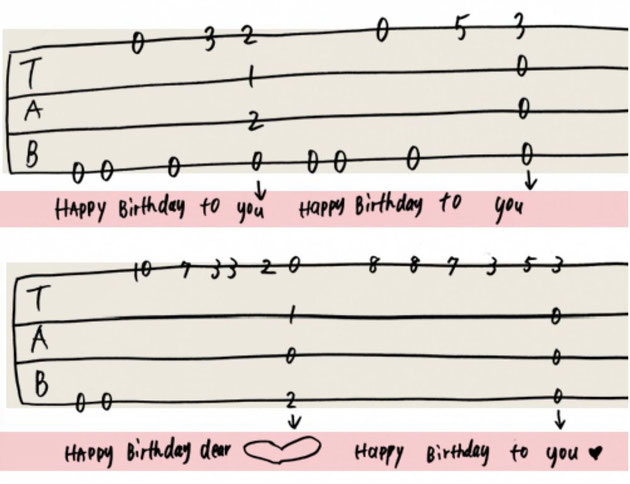 0 3 2 0 5 3
T 1 0
A 2 0
B 0 0 0 0 0 0 0 0
HAPPY Birthday to you Happy Birthday to you
10 7 3 3 2 0 8 8 7 3 5 3
T 1 0
A 0 0
B 0 0 2 0
HAPPY Birthday dear Happy Birthday to you